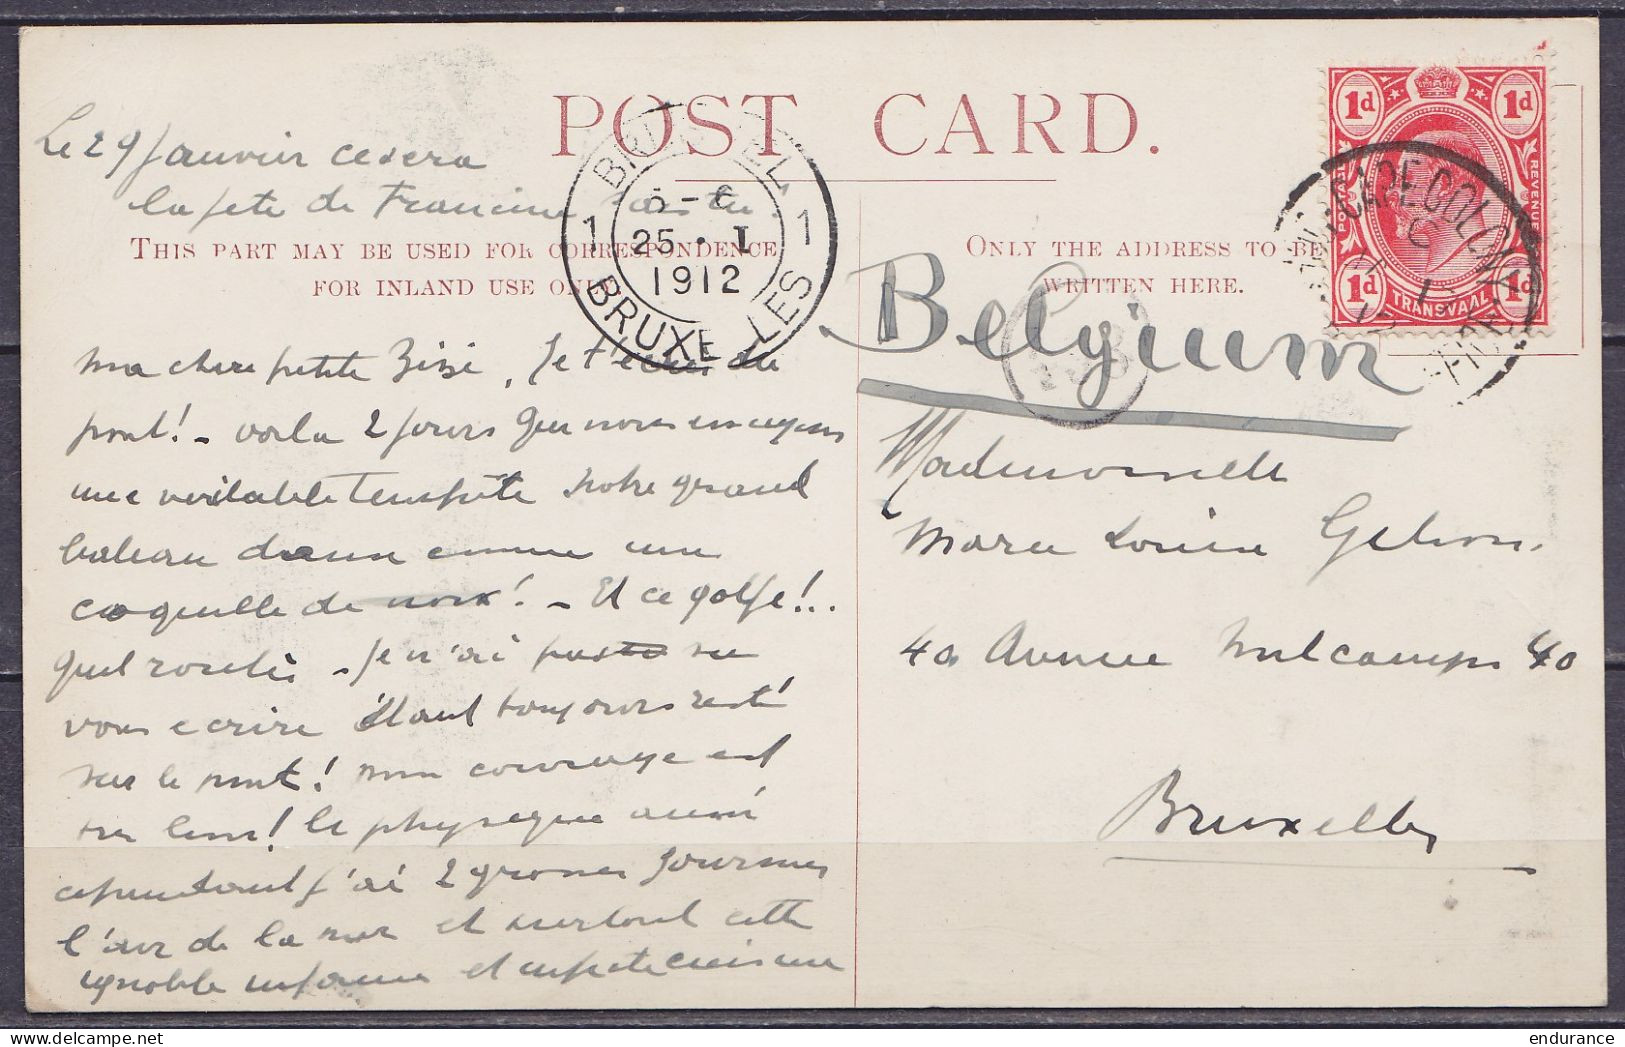 POST CARD.
Le 29 Janvier ce sera
la fete de Francine
THIS PART MAY BE USED FOR CORRESPONDENCE
FOR INLAND USE ONLY.
BRUSSEL
1 1
5-6
25 · I
1912
BRUXELLES
ma chere petite Zizi, Je t'écris du
pont! - voila 2 jours que nous essuyons
une veritable tempête notre grand
bateau danse comme une
coquille de noix! - Et ce golfe!..
quel rosserie - Je n'ai pas su
vous ecrire étant toujours resté
sur le pont! mon courage est
tres bon! le physique aussi
cependant j'ai 2 grosses
l'air de la mer et surtout cette
ignoble infame et
ONLY THE ADDRESS TO BE
WRITTEN HERE.
1d 1d
REVENUE
1d 1d
TRANSVAAL
CAPE COLONY
Belgium
Mademoiselle
Marie Louise
40 Avenue Hulcamps 40
Bruxelles
endurance